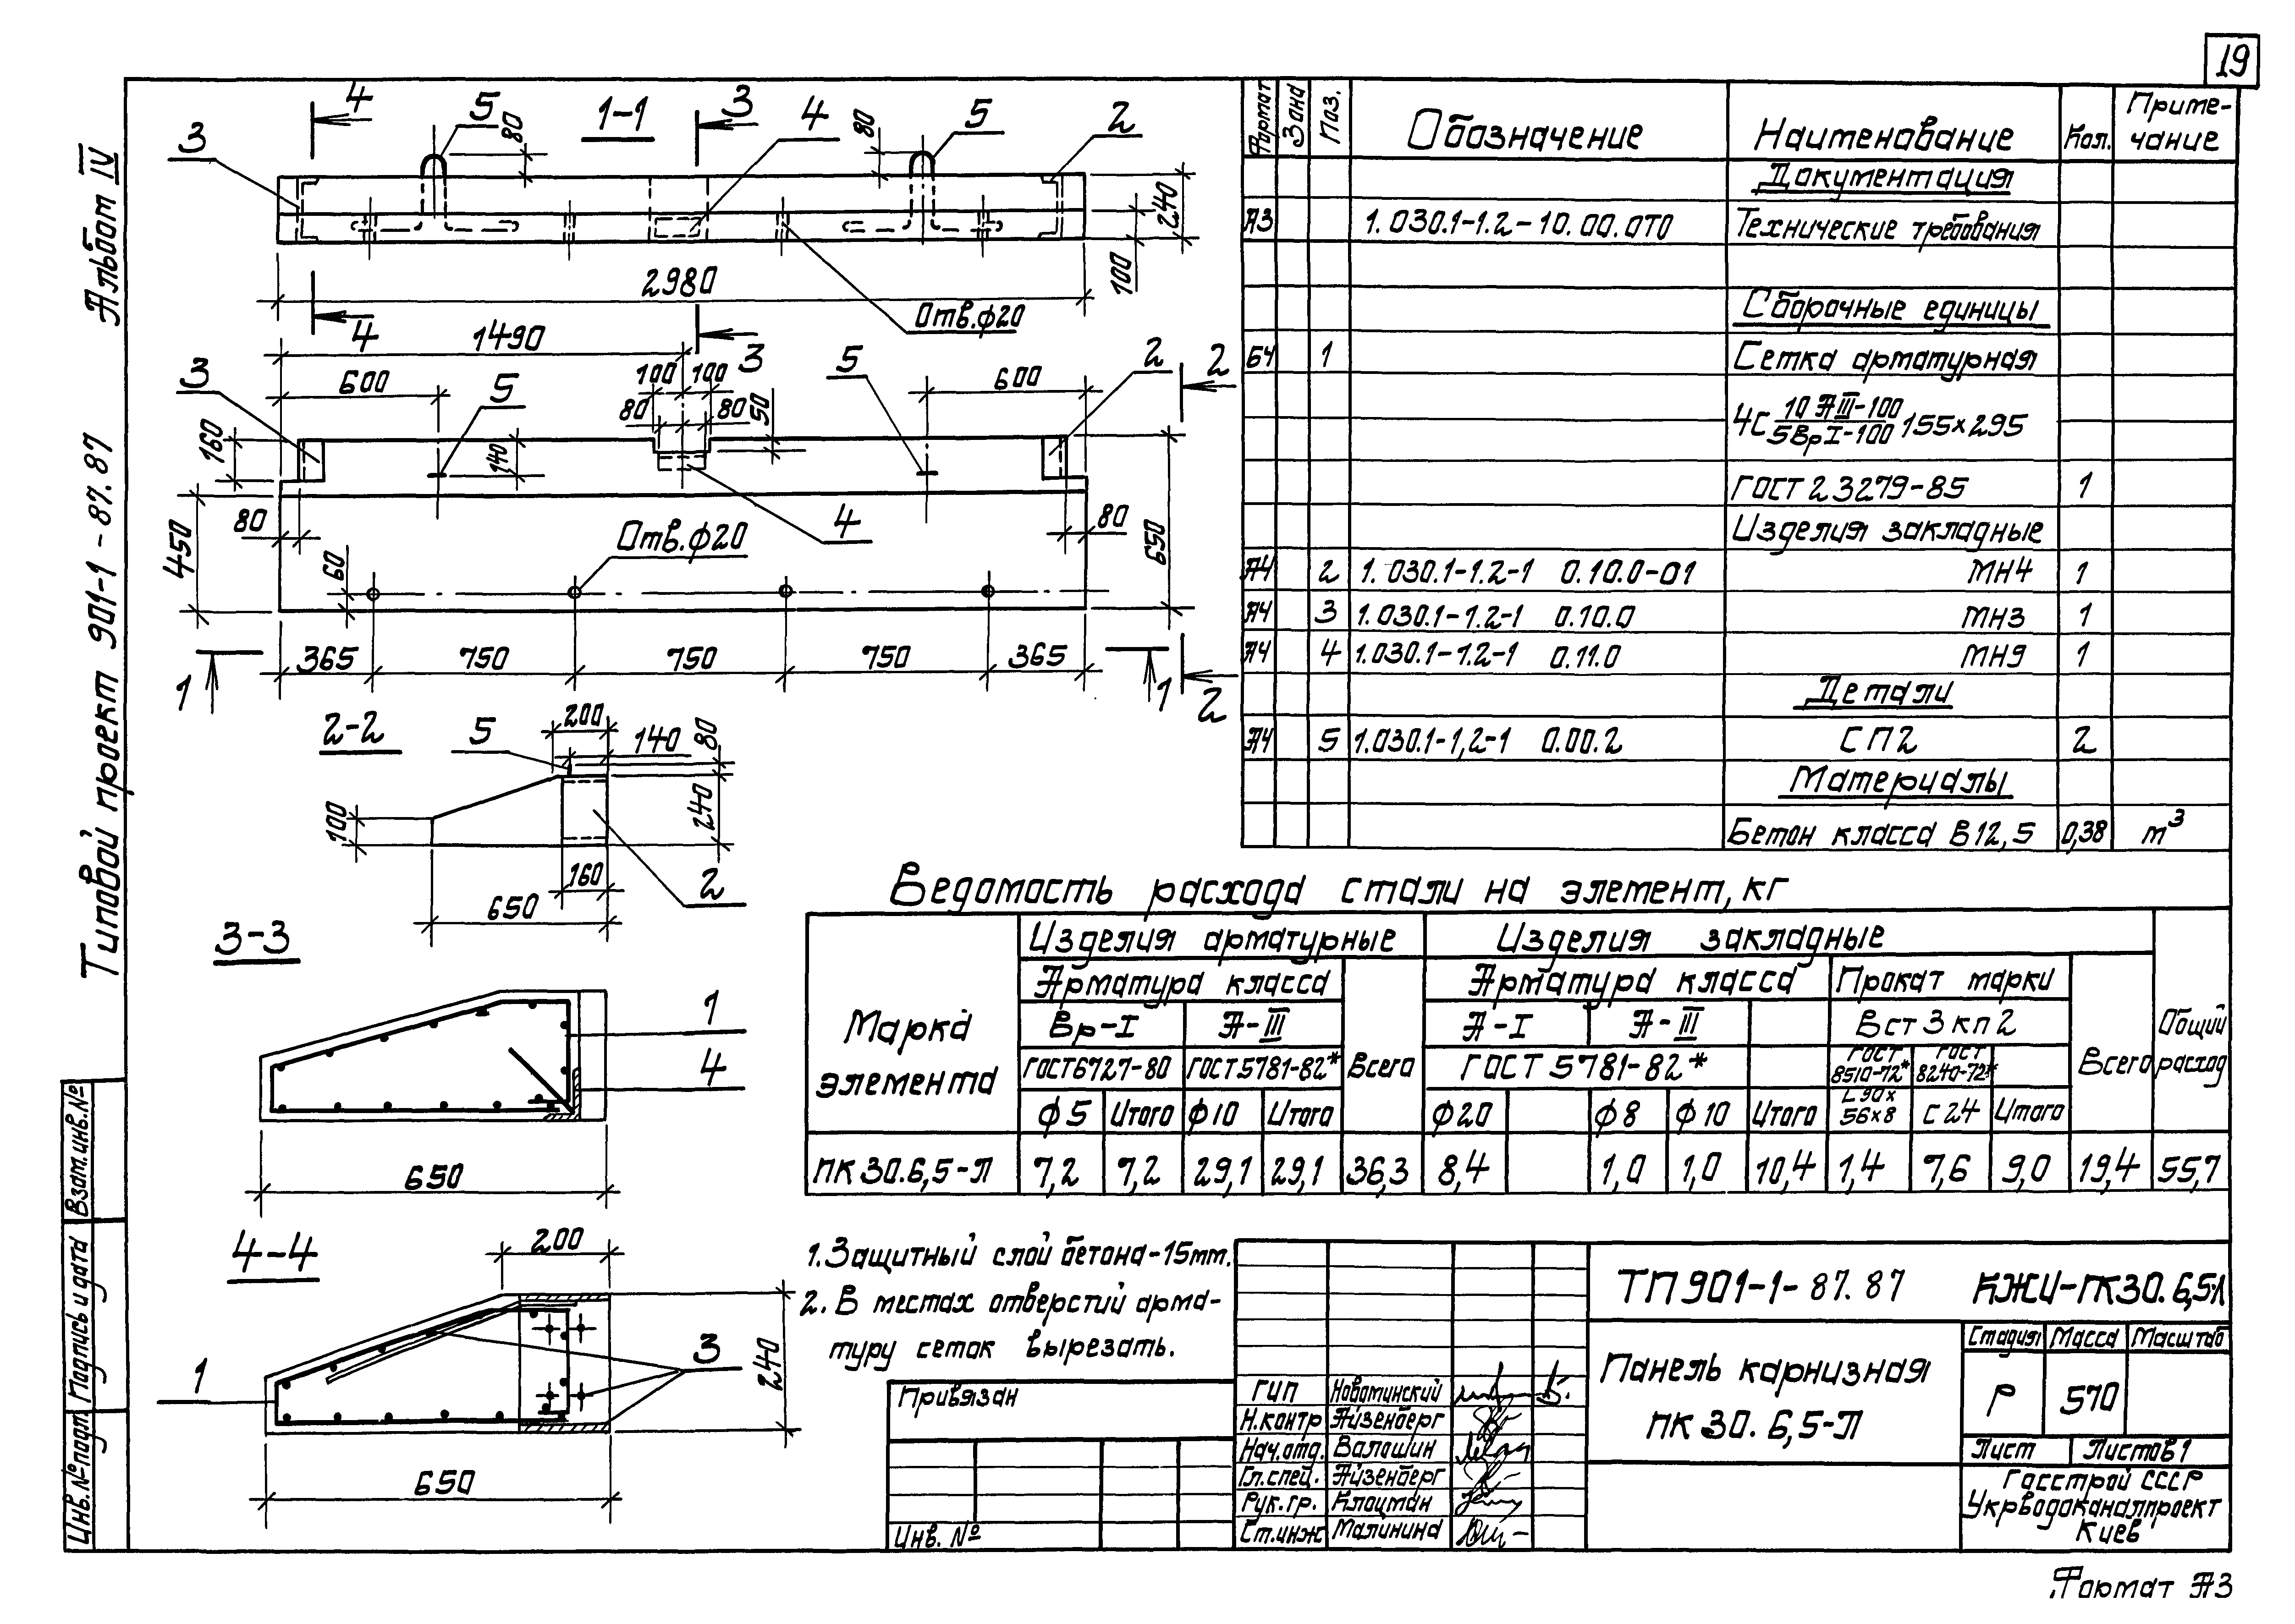 19
Альбом IV
Типовой проект 901-1-87.87
Взам.инв.№
Подпись и дата
Инв.№подл.
1-1
4
3
3
5
80
4
80
5
2
240
100
2980
Отв.ф20
4
3
1490
600
100
100
600
3
5
80
80
50
5
2
2
160
140
80
4
80
450
650
60
Отв.ф20
365
750
750
750
365
1
1
2
2-2
5
200
140
80
100
240
160
2
650
3-3
1
4
650
4-4
200
1
3
240
650
Формат
Зона
Поз.
Обозначение
Наименование
Кол.
Приме-
чание
Документация
А3 1.030.1-1.2-10.00.0ТО Технические требования
Сборочные единицы
Б4 1 Сетка арматурная
4С 10 АIII-100 / 5ВрI-100 155х295
ГОСТ 23279-85 1
Изделия закладные
А4 2 1.030.1-1.2-1 0.10.0-01 МН4 1
А4 3 1.030.1-1.2-1 0.10.0 МН3 1
А4 4 1.030.1-1.2-1 0.11.0 МН9 1
Детали
А4 5 1.030.1-1,2-1 0.00.2 СП2 2
Материалы
Бетон класса В12,5 0,38 м³
Ведомость расхода стали на элемент, кг
Марка
элемента
Изделия арматурные
Изделия закладные
Общий
расход
Арматура класса
Всего
Арматура класса
Прокат марки
Всего
Вр-I
А-III
А-I
А-III
Вст3кп2
ГОСТ6727-80
ГОСТ5781-82*
ГОСТ 5781-82*
ГОСТ
8510-72*
ГОСТ
8240-72*
ф5 Итого ф10 Итого ф20 ф8 ф10 Итого
L90х
56х8
С24 Итого
ПК30.6,5-П 7,2 7,2 29,1 29,1 36,3 8,4 1,0 1,0 10,4 1,4 7,6 9,0 19,4 55,7
1. Защитный слой бетона-15мм.
2. В местах отверстий арма-
туру сеток вырезать.
Привязан
Инв. №
ГИП Новоминский
Н.контр Айзенберг
Нач.отд. Волошин
Гл.спец. Айзенберг
Рук.гр. Клоцман
Ст.инж Малинина
ТП901-1-87.87 КЖИ-ПК30.6,5-П
Панель карнизная
ПК 30.6,5-П
Стадия Масса Масштаб
Р 570
Лист Листов 1
Госстрой СССР
Укрводоканалпроект
Киев
Формат А3